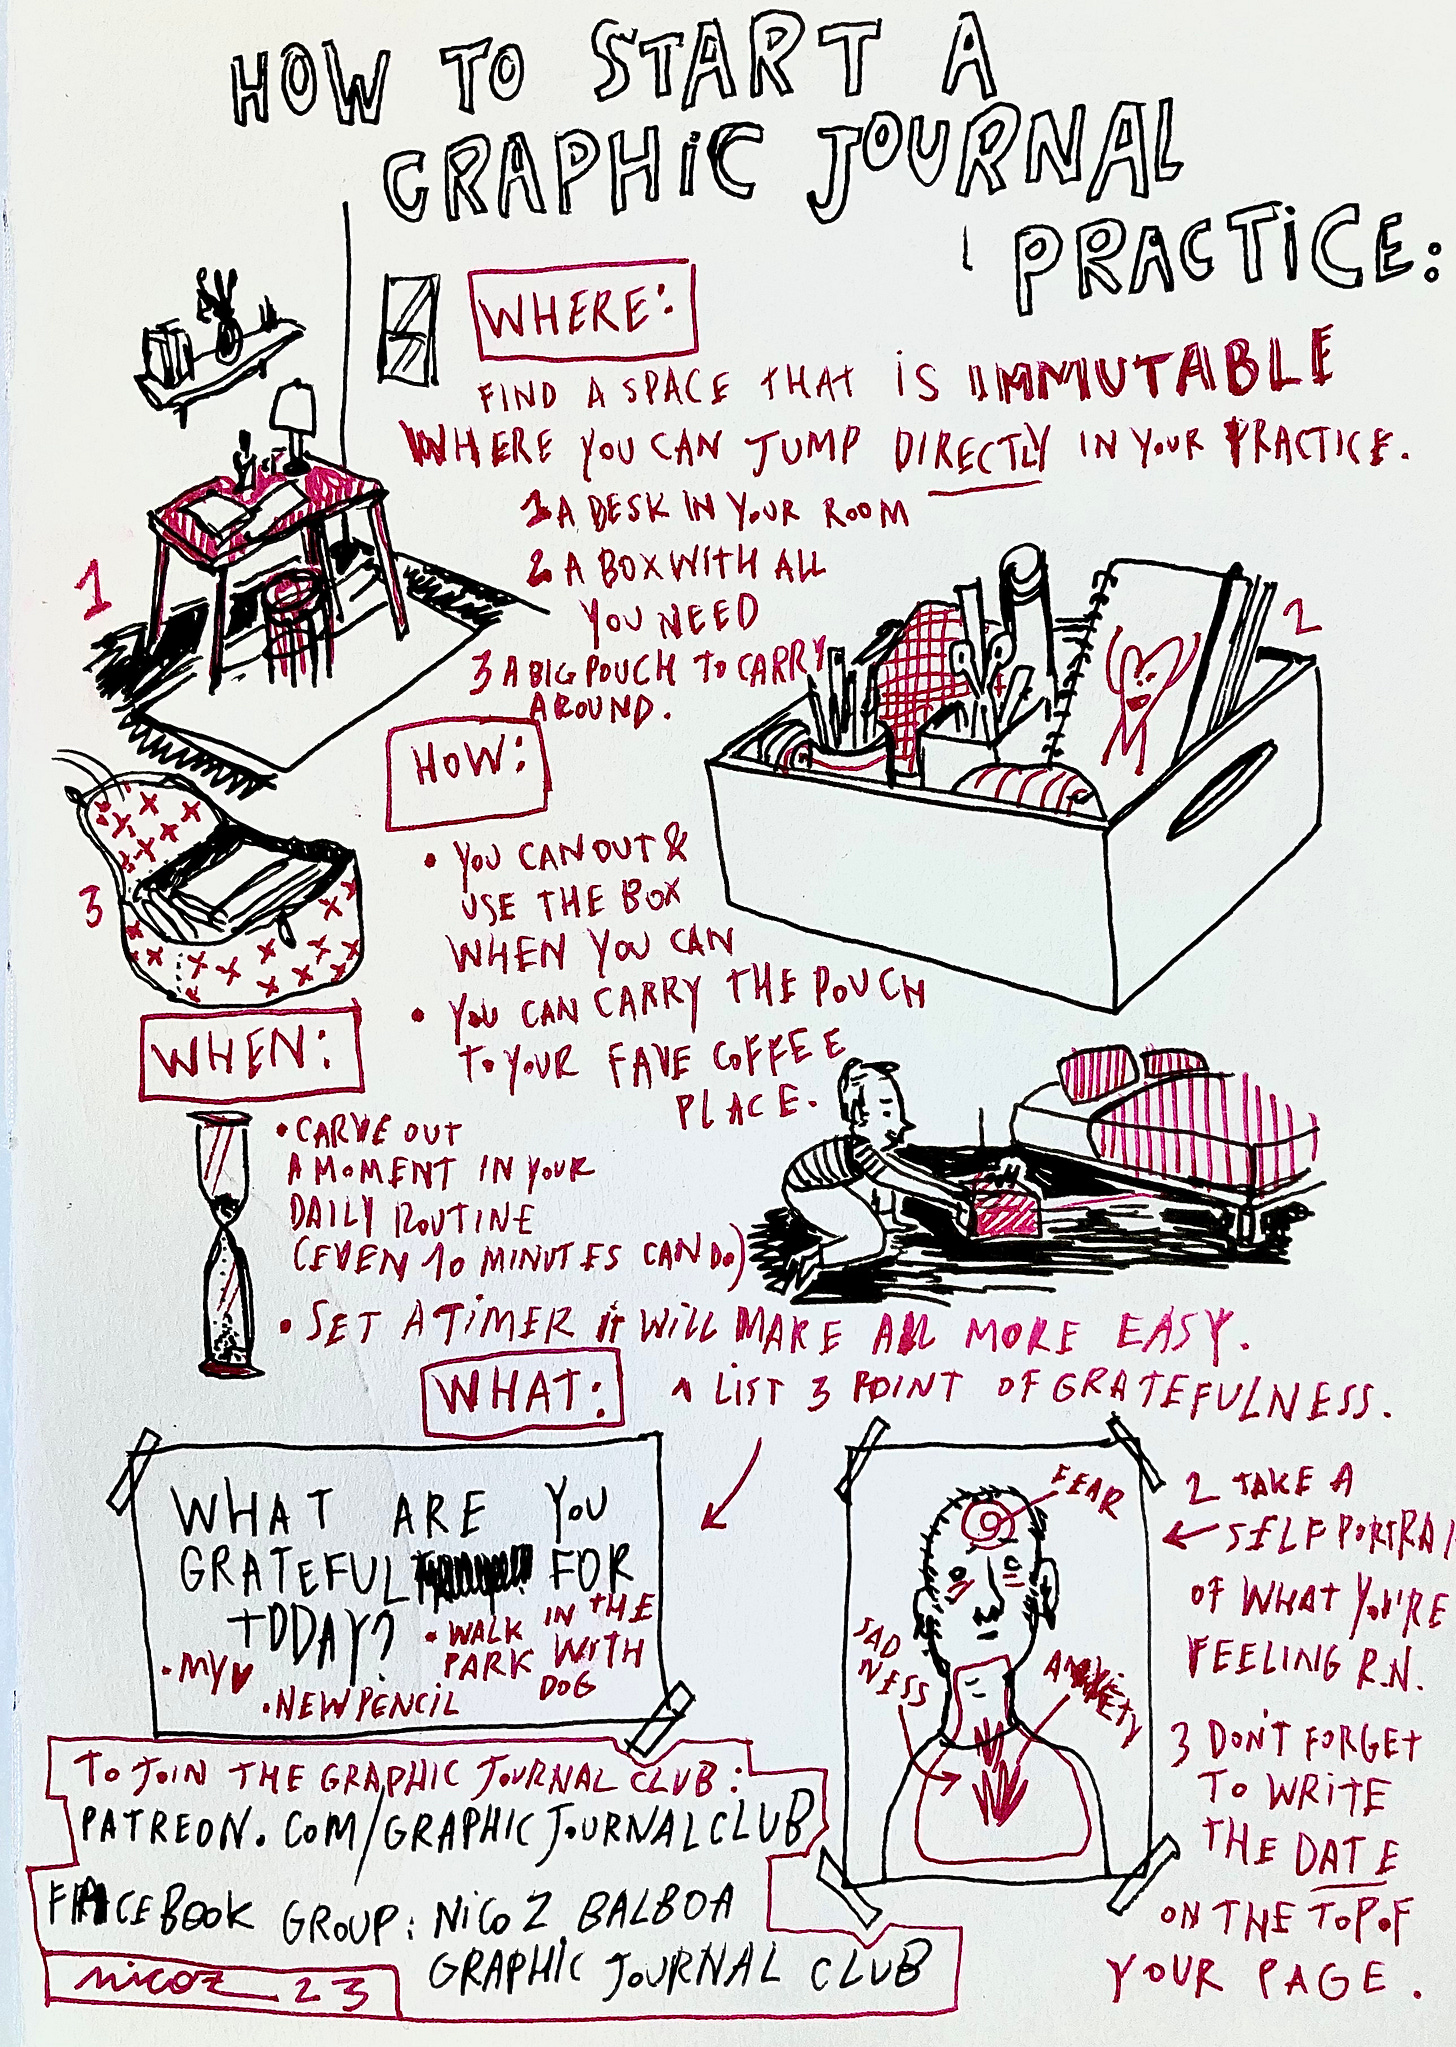 HOW TO START A
GRAPHIC JOURNAL
PRACTICE:
WHERE:
FIND A SPACE THAT IS IMMUTABLE
WHERE YOU CAN JUMP DIRECTLY IN YOUR PRACTICE.
1 A DESK IN YOUR ROOM
2 A BOX WITH ALL
YOU NEED
3 A BIG POUCH TO CARRY
AROUND.
1
2
3
HOW:
• YOU CAN OUT &
USE THE BOX
WHEN YOU CAN
• YOU CAN CARRY THE POUCH
TO YOUR FAVE COFFEE
PLACE.
WHEN:
• CARVE OUT
A MOMENT IN YOUR
DAILY ROUTINE
(EVEN 10 MINUTES CAN DO)
• SET A TIMER IT WILL MAKE ALL MORE EASY.
WHAT:
1 LIST 3 POINT OF GRATEFULNESS.
WHAT ARE YOU
GRATEFUL FOR
TODAY?
• WALK IN THE
PARK WITH
DOG
• MY ♥
• NEW PENCIL
FEAR
SAD
NESS
ANXIETY
2 TAKE A
SELF PORTRAI
OF WHAT YOU'RE
FEELING R.N.
3 DON'T FORGET
TO WRITE
THE DATE
ON THE TOP OF
YOUR PAGE.
TO JOIN THE GRAPHIC JOURNAL CLUB:
PATREON.COM/GRAPHICJOURNALCLUB
FACEBOOK GROUP: NICOZ BALBOA
GRAPHIC JOURNAL CLUB
NICOZ 23